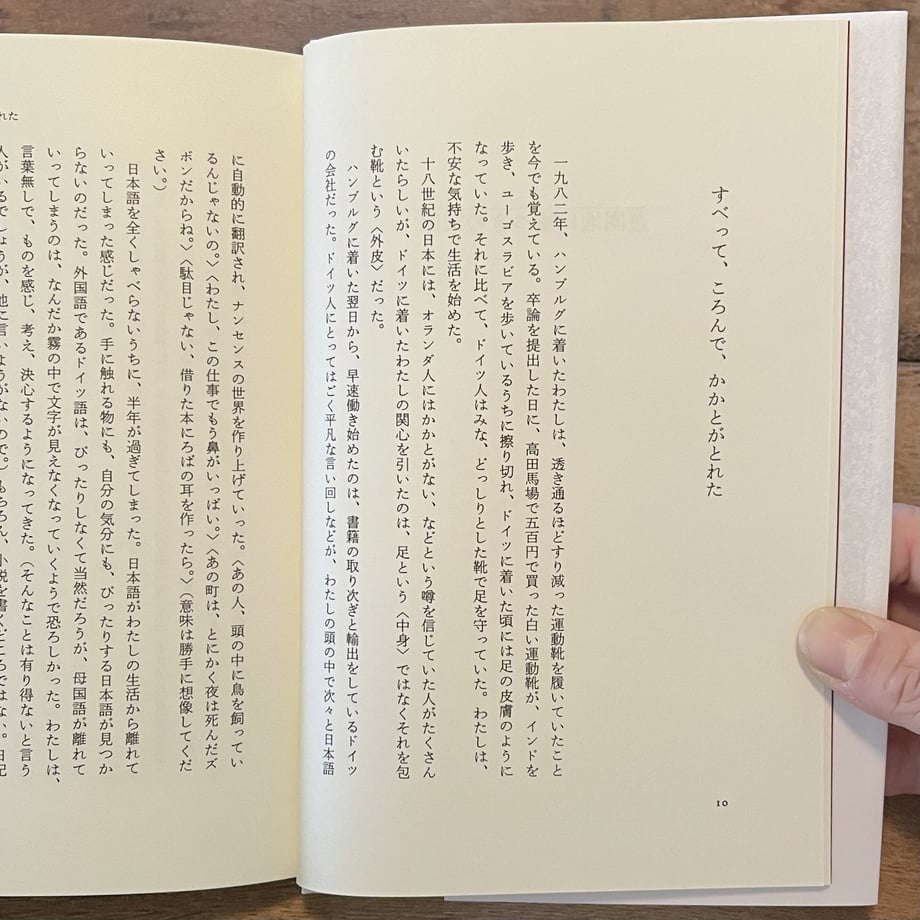 すべって、ころんで、かかとがとれた
一九八二年、ハンブルグに着いたわたしは、透き通るほどすり減った運動靴を履いていたこと
を今でも覚えている。卒論を提出した日に、高田馬場で五百円で買った白い運動靴が、インドを
歩き、ユーゴスラビアを歩いているうちに擦り切れ、ドイツに着いた頃には足の皮膚のように
なっていた。それに比べて、ドイツ人はみな、どっしりとした靴で足を守っていた。わたしは、
不安な気持ちで生活を始めた。
十八世紀の日本には、オランダ人にはかかとがない、などという噂を信じていた人がたくさん
いたらしいが、ドイツに着いたわたしの関心を引いたのは、足という〈中身〉ではなくそれを包
む靴という〈外皮〉だった。
ハンブルグに着いた翌日から、早速働き始めたのは、書籍の取り次ぎと輸出をしているドイツ
の会社だった。ドイツ人にとってはごく平凡な言い回しなどが、わたしの頭の中で次々と日本語
10
に自動的に翻訳され、ナンセンスの世界を作り上げていった。〈あの人、頭の中に鳥を飼ってい
るんじゃないの。〉〈わたし、この仕事でもう鼻がいっぱい。〉〈あの町は、とにかく夜は死んだズ
ボンだからね。〉〈駄目じゃない、借りた本にろばの耳を作ったら。〉（意味は勝手に想像してくだ
さい。）
日本語を全くしゃべらないうちに、半年が過ぎてしまった。日本語がわたしの生活から離れて
いってしまった感じだった。手に触れる物にも、自分の気分にも、ぴったりする日本語が見つか
らないのだった。外国語であるドイツ語は、ぴったりしなくて当然だろうが、母国語が離れて
いってしまうのは、なんだか霧の中で文字が見えなくなっていくようで恐ろしかった。わたしは、
言葉無しで、ものを感じ、考え、決心するようになってきた。（そんなことは有り得ないと言う
人がいるでしょうが、他に言いようがないので。）もちろん、小説を書くどころではない。日記
れた